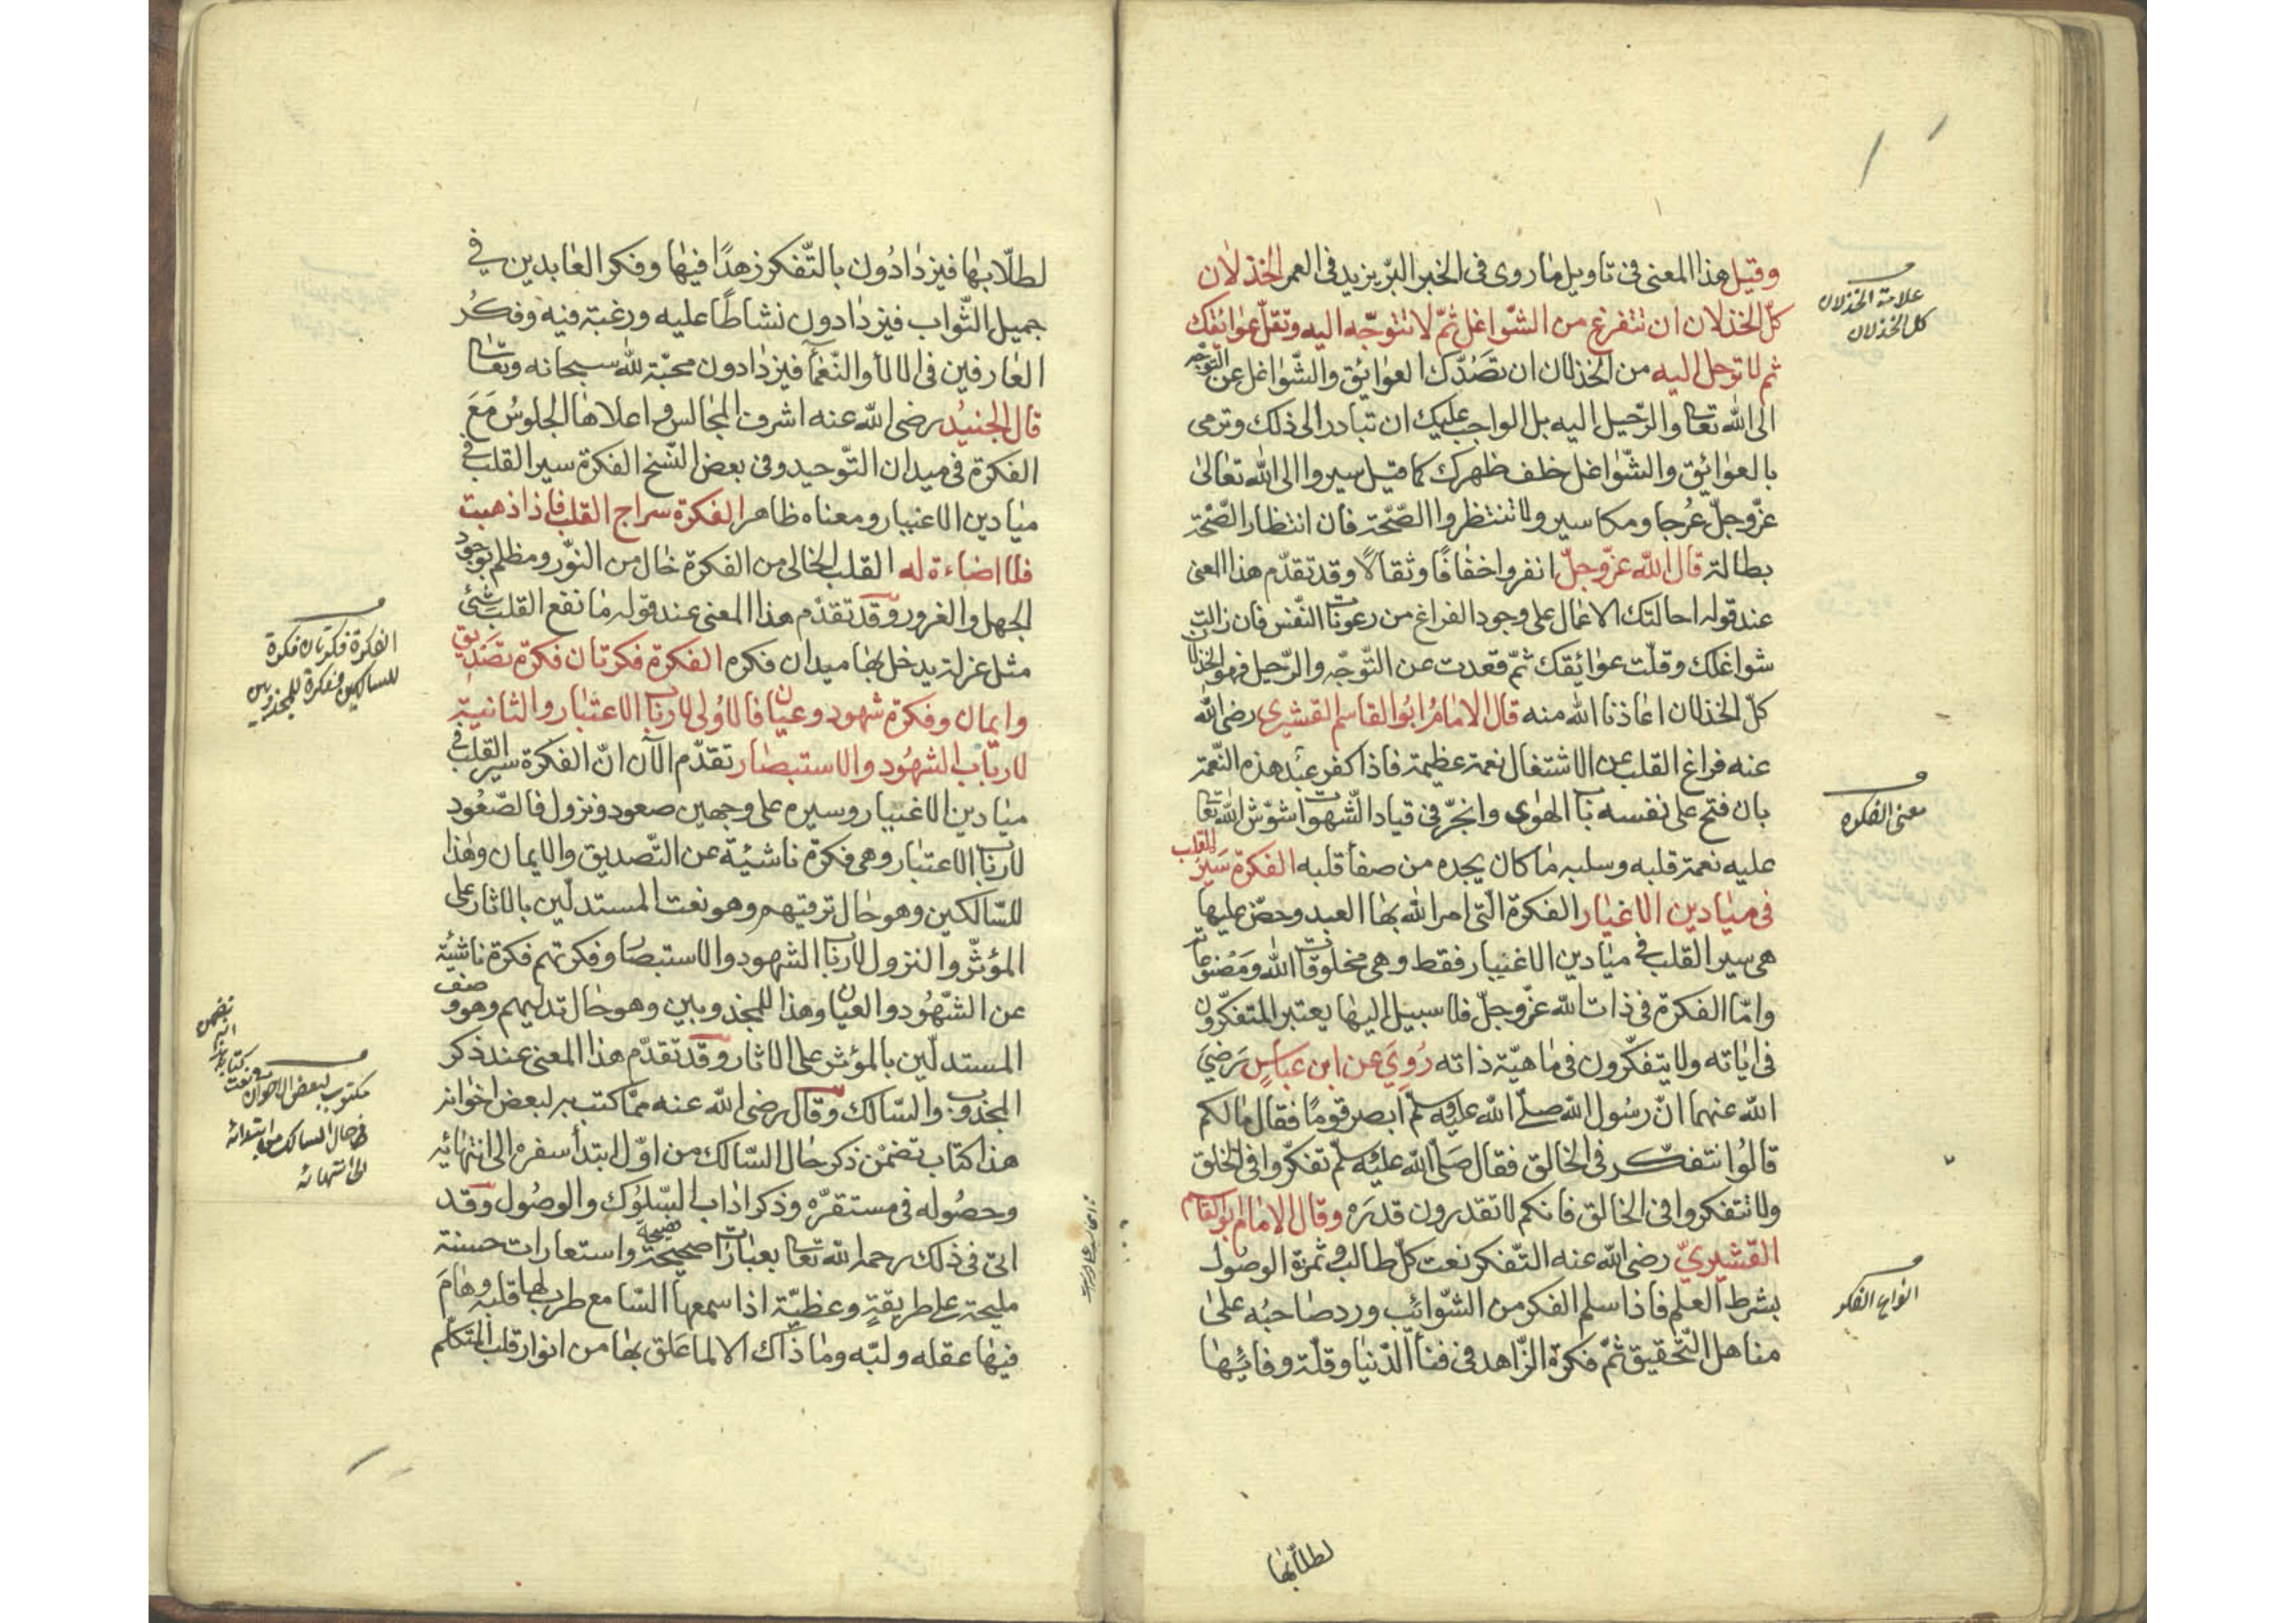 وقيل هذا المعنى فى تاويل ما روى فى الخبر البرّ يزيد فى العمر الخذلان
كلّ الخذلان ان تتفرغ من الشّواغل ثمّ لا تتوجّه اليه وتقلّ عوائقك
ثم لا ترحل اليه من الخذلان ان تصدّك العوائق والشّواغل عن التوجّه
الى الله تعا والرّحيل اليه بل الواجب عليك ان تبادر الى ذلك وترمى
بالعوائق والشّواغل خلف ظهرك كما قيل سيروا الى الله تعالى
عزّ وجلّ عُرجا ومكاسير ولا تنتظروا الصّحّة فان انتظار الصّحّة
بطالة قال الله عزّ وجلّ انفروا خفافًا وثقالًا وقد تقدّم هذا المعنى
عند قوله احالتك الاعمال على وجود الفراغ من رعونات النّفس فان زالت
شواغلك وقلّت عوائقك ثمّ قعدت عن التّوجّه والرّحيل فهو الخذلان
كلّ الخذلان اعاذنا الله منه قال الامامُ ابُو القاسم القشيرى رضى الله
عنه فراغ القلب عن الاشتغال نعمة عظيمة فاذا كفر عبد هذه النّعمة
بان فتح على نفسه باب الهوى وانجرّ فى قياد الشّهوات شوّش الله تعا
عليه نعمة قلبه وسلبه ما كان يجده من صفأ قلبه الفكرة سَيرُ القلب
فى ميادين الاغيار الفكرة الّتى امر الله بها العبد وحضّ عليها
هى سير القلب فى ميادين الاغيار فقط وهى مخلوقات الله ومصنوعاته
وامّا الفكرة فى ذات الله عزّ وجلّ فلا سبيل اليها يعتبر المتفكّرون
فى اياته ولا يتفكّرون فى ماهيّة ذاته رُوِيَ عن ابن عباسٍ رَضيَ
الله عنهما انّ رسُول الله صلّى الله عليه وسلّم ابصر قومًا فقال مالكم
قالُوا نتفكّر فى الخالق فقال صَلّى الله عليْه وسلّم تفكّروا فى الخلق
ولا تتفكروا فى الخالق فانكم لا تقدرون قدرَه وقال الامام ابو القاسم
القشيريّ رضى الله عنه التّفكر نعت كلّ طالب وثمرة الوصُول
بشرط العلم فاذا سلم الفكر من الشّوائب ورد صاحبُه على
مناهل التّحقيق ثمّ فكرة الزّاهد فى فنأ الدّنيا وقلّة وفائها
علامة الخذلان
كل الخذلان
معنى الفكره
انواع الفكر
لطلّابها
لطلّابها فيزدادُون بالتّفكر زهدًا فيها وفكر العابدين فى
جميل الثّواب فيزدادون نشاطًا عليه ورغبة فيه وفكرُ
العارفين فى الالآ والنّعمآ فيزدادون محبّة لله سبحانه وتعا
قال الجنيْد رضى الله عنه اشرف المجالس واعلاها الجلوسُ مَعَ
الفكرة فى ميدان التّوحيد وفى بعض النّسخ الفكرة سير القلب فى
ميادين الاغيبار ومعناه ظاهر الفكرة سراج القلب فاذا ذهبت
فلا اضاءة له القلب الخالى من الفكرة خال من النّور ومظلم بوجود
الجهل والغرور وقد تقدّم هذا المعنى عند قوله ما نفع القلب شئ
مثل عزلة يدخل بها ميدان فكره الفكرة فكرتان فكرة تصديق
وايمان وفكرة شهود وعيان فالاُولى لارباب الاعتبار والثانية
لارباب الشهُود والاستبصار تقدّم الآن انّ الفكرة سير القلب فى
ميادين الاغيبار وسيره على وجهين صعود ونزول فالصّعُود
لارباب الاعتبار وهى فكرة ناشئة عن التّصديق والايمان وهذا
للسّالكين وهو حال ترقيتهم وهو نعت المستدلّين بالاثار على
المؤثّر والنزول لارباب الشهود والاستبصار وفكرتهم فكرة ناشئة
عن الشّهُود والعيان وهذا للمجذوبين وهو حال تدليهم وهو وصف
المستدلّين بالمؤثر على الاثار وقد تقدّم هذا المعنى عند ذكر
المجذوب والسّالك وقال رضى الله عنه ممّا كتب به لبعض اخوانه
هذا كتاب تضمْن ذكر حال السّالك من اوّل ابتدأ سفره الى انتهائيه
وحصُوله فى مستقرّه وذكر اداب السّلُوك والوصُول وقد
اتى فى ذلك رحمه الله تعا بعبارات صحيحة فصيحة واستعارات حسنة
مليحة على طريقةٍ وعظيّة اذا سمعها السّامع طرب لها قلبه وهَامَ
فيها عقله ولبّه وما ذاك الا لما علق بها من انوار قلب المتكلّم
الفكرة فكرتان فكرة
للسالكين وفكرة للمجذوبين
مكتوب لبعض الاخوان
فى حال السالك من ابتدائه
الى انتهائه